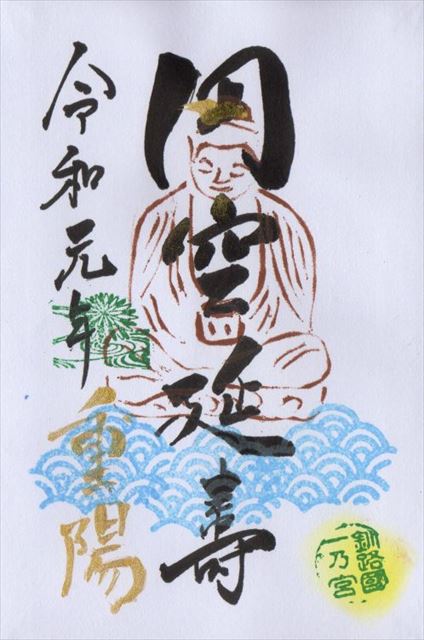 円空延壽
令和元年
重陽
釧路國
一乃宮